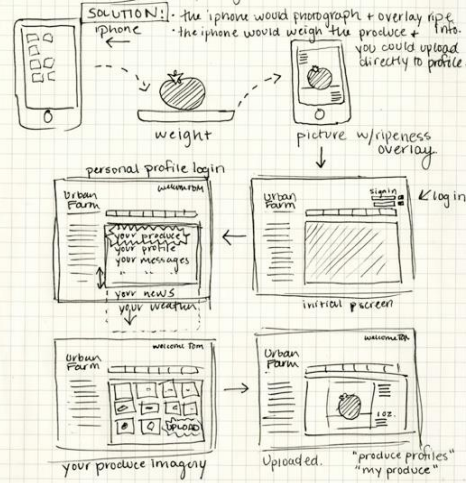 SOLUTION: · the iphone would photograph + overlay ripe info.
· the iphone would weigh the produce +
you could upload
directly to profile.
iphone
weight
picture w/ripeness
overlay
personal profile login
Urban
Farm
welcome TOM
your produce
your profile
your messages
" " "
your news
your weather
Urban
Farm
sign in
log in
initial pscreen
Urban
Farm
welcome Tom
UPLOAD
your produce imagery
Urban
Farm
welcome Tom
1 oz.
Uploaded.
"produce profiles"
"my produce"